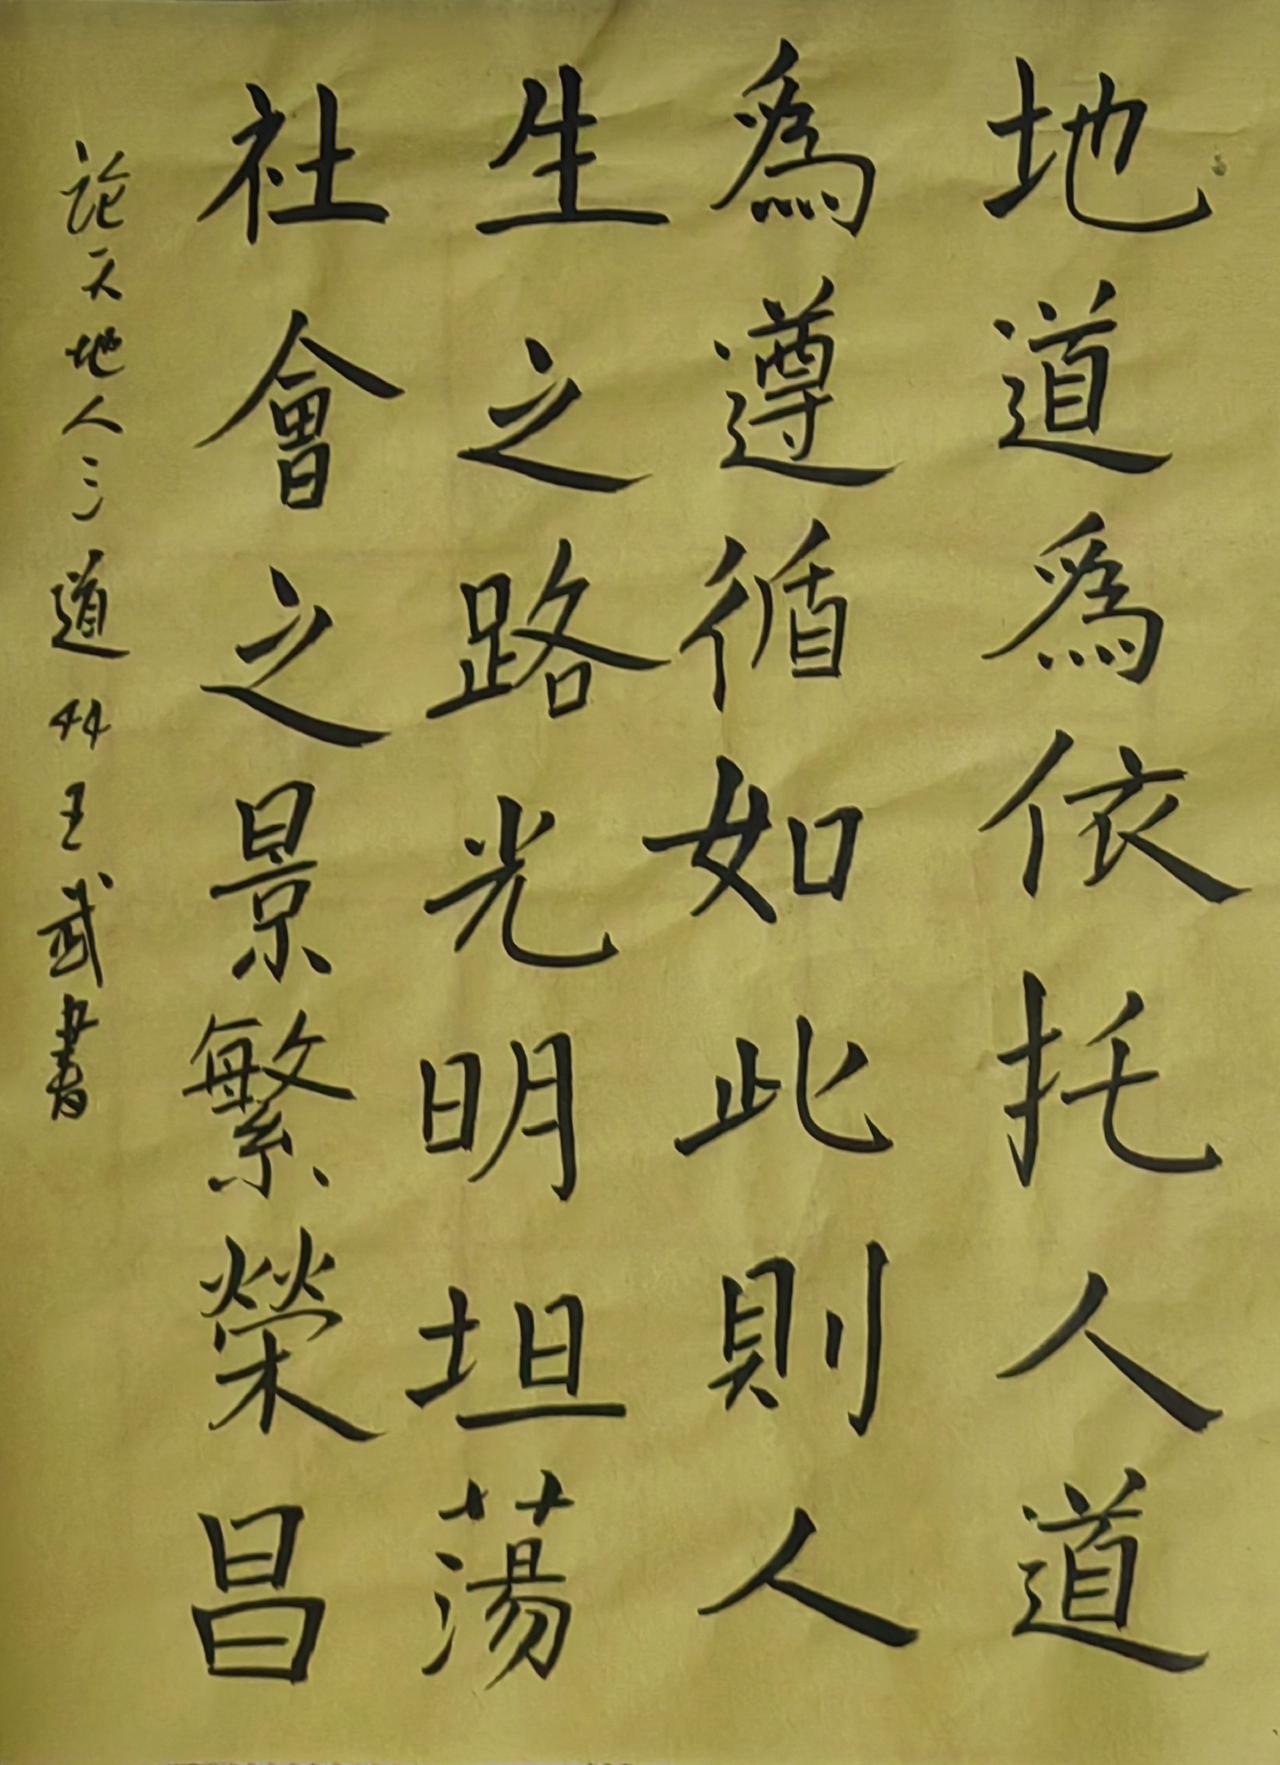 地道為依托人道
為遵循如此則人
生之路光明坦蕩
社會之景繁榮昌
论天地人三道 王武書